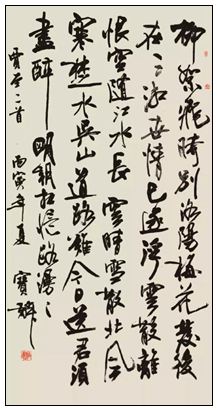 柳絮飛時別洛陽梅花發後
在三湘世情已逐浮雲散離
恨空隨江水長雲晴雪散北風
寒楚水吳山道路難今日送君須
盡醉明朝相憶路漫々
賈至二首丙寅年夏寶